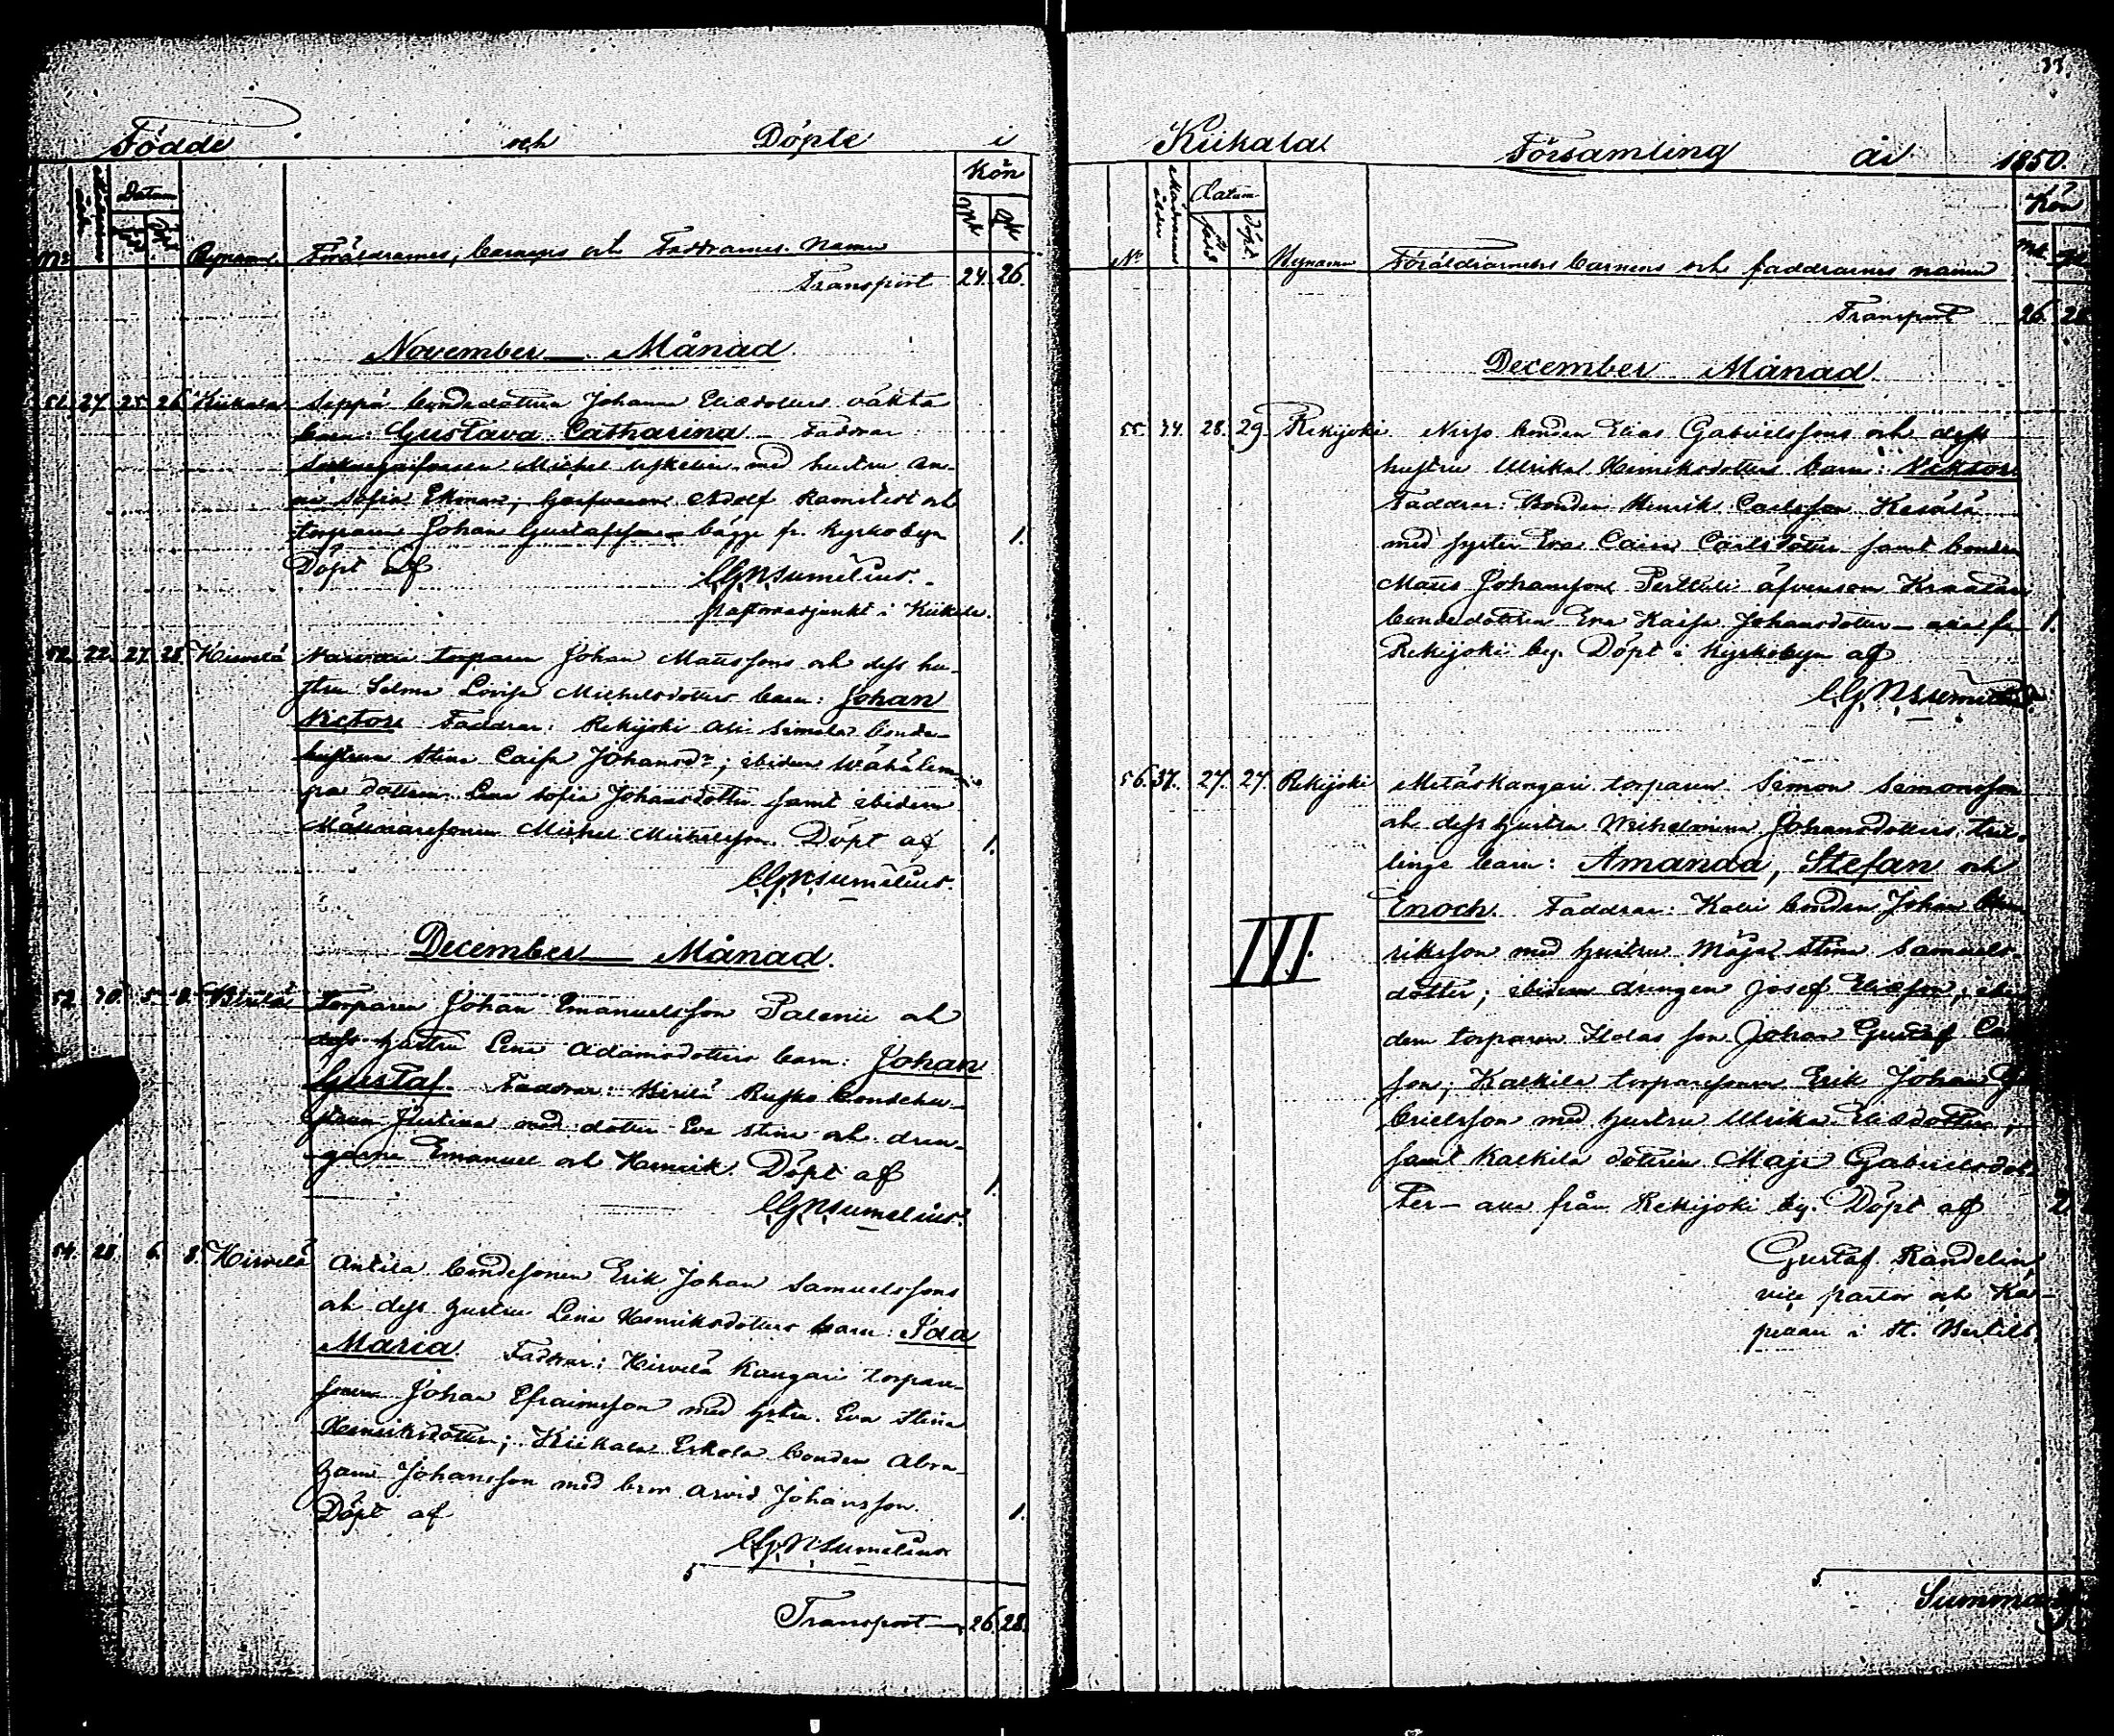 33.
Födde och Döpte i
Kön
Datum
No Bynamn Föräldrarnes, barnens och Faddrarnes Namn
Transport 24. 26.
November Månad
51. 27. 25. 26. Kiikala Seppä bondedottern Johanna Eliædotters oäkta
barn: Gustava Catharina Faddrar
Michel med hustru An-
na Sofia Ekman, Adolf och
torparen Johan Gustafsson bägge fr. Kyrkobyn 1.
Döpt af C.G.N. Sumelius.
pastorsadjunkt i Kiikala.
52. 22. 27. 28. Hirvelä torparen Johan Mattssons och dess hu-
stru Selma Lovisa Michelsdotters barn: Johan
Victor Faddrar: Rekijoki Ali Simola bonde-
hustrun Stina Caisa Johansdr; ibidem
pä dottern Lena Sofia Johansdotter samt ibidem
Michel Michelsson. Döpt af 1.
C.G.N. Sumelius.
December Månad.
53. 40. 5. 8. Torparen Johan Emanuelsson Palenii och
dess hustru Lena Adamsdotters barn: Johan
Gustaf. Faddrar: Rusko bondehu-
strun Justina med dotter Eva Stina och drän-
garne Emanuel och Henrik. Döpt af 1.
C.G.N. Sumelius.
54. 28. 6. 8. Hirvelä Antila bondesonen Erik Johan Samuelssons
och dess hustru Lena Henriksdotters barn: Ida
Maria Faddrar: Hirvelä Kangari torpare-
sonen Johan Efraimsson med hstru. Eva Stina
Henriksdotter; Kiikala Eskola bonden Abra-
ham Johansson med bror Arvid Johansson. 1.
Döpt af
C.G.N. Sumelius
Transport 26. 28.
Kiikala Församling år 1850.
Kön
Datum
No Moderns ålder född Döpt Bynamn Föräldrarnes barnens och faddrarnes namn
Transport 26. 28
December Månad
55. 34. 28. 29. Rekijoki bonden Elias Gabrielssons och dess
hustru Ulrika Henriksdotters barn: Viktor
Faddrar: Bonden Henrik Carlsson Kesälä
med syster Eva Caisa Carlsdotter samt bonden
Matts Johansson Perttula äfvensom
bondedottren Eva Kaisa Johansdotter — alla fr. 1.
Rekijoki by. Döpt i Kyrkobyn af
C.G.N. Sumelius.
56. 37. 27. 27. Rekijoki Metäskangari torparen Simon Simonsson
och dess hustru Wilhelmina Johansdotters tril-
lings barn: Amanda, Stefan och
Enoch. Faddrar: bonden Johan Hen-
III
riksson med hustru Maja Stina Samuels-
dotter; ibidem drängen Josef Eliæson; ibi-
dem torparen son Johan Gustaf
son; Kalkila torparesonen Erik Johan Ga-
brielsson med hustru Ulrika Eliædotter,
samt Kalkila dottren Maja Gabrielsdot-
ter — alla från Rekijoki by. Döpt af 2
Gustaf Randelin,
vice pastor och Ka-
pellan i St. Bertils.
Summa